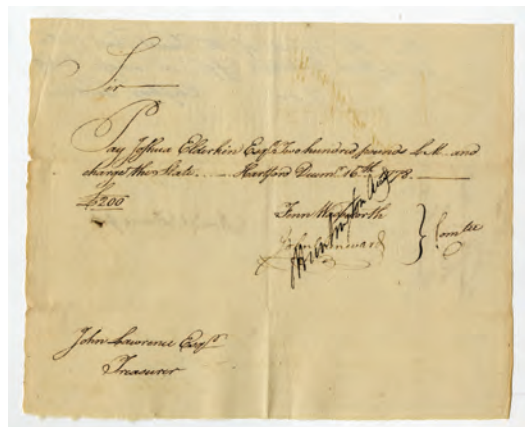 Sir
Pay Joshua Elderkin Esqr. Two hundred pounds L.M. and
charge the State. Hartford Decemr. 16th 1778.
£200
Fenn Wadsworth
John Chenward
} Comtee
John Lawrence Esqr.
Treasurer